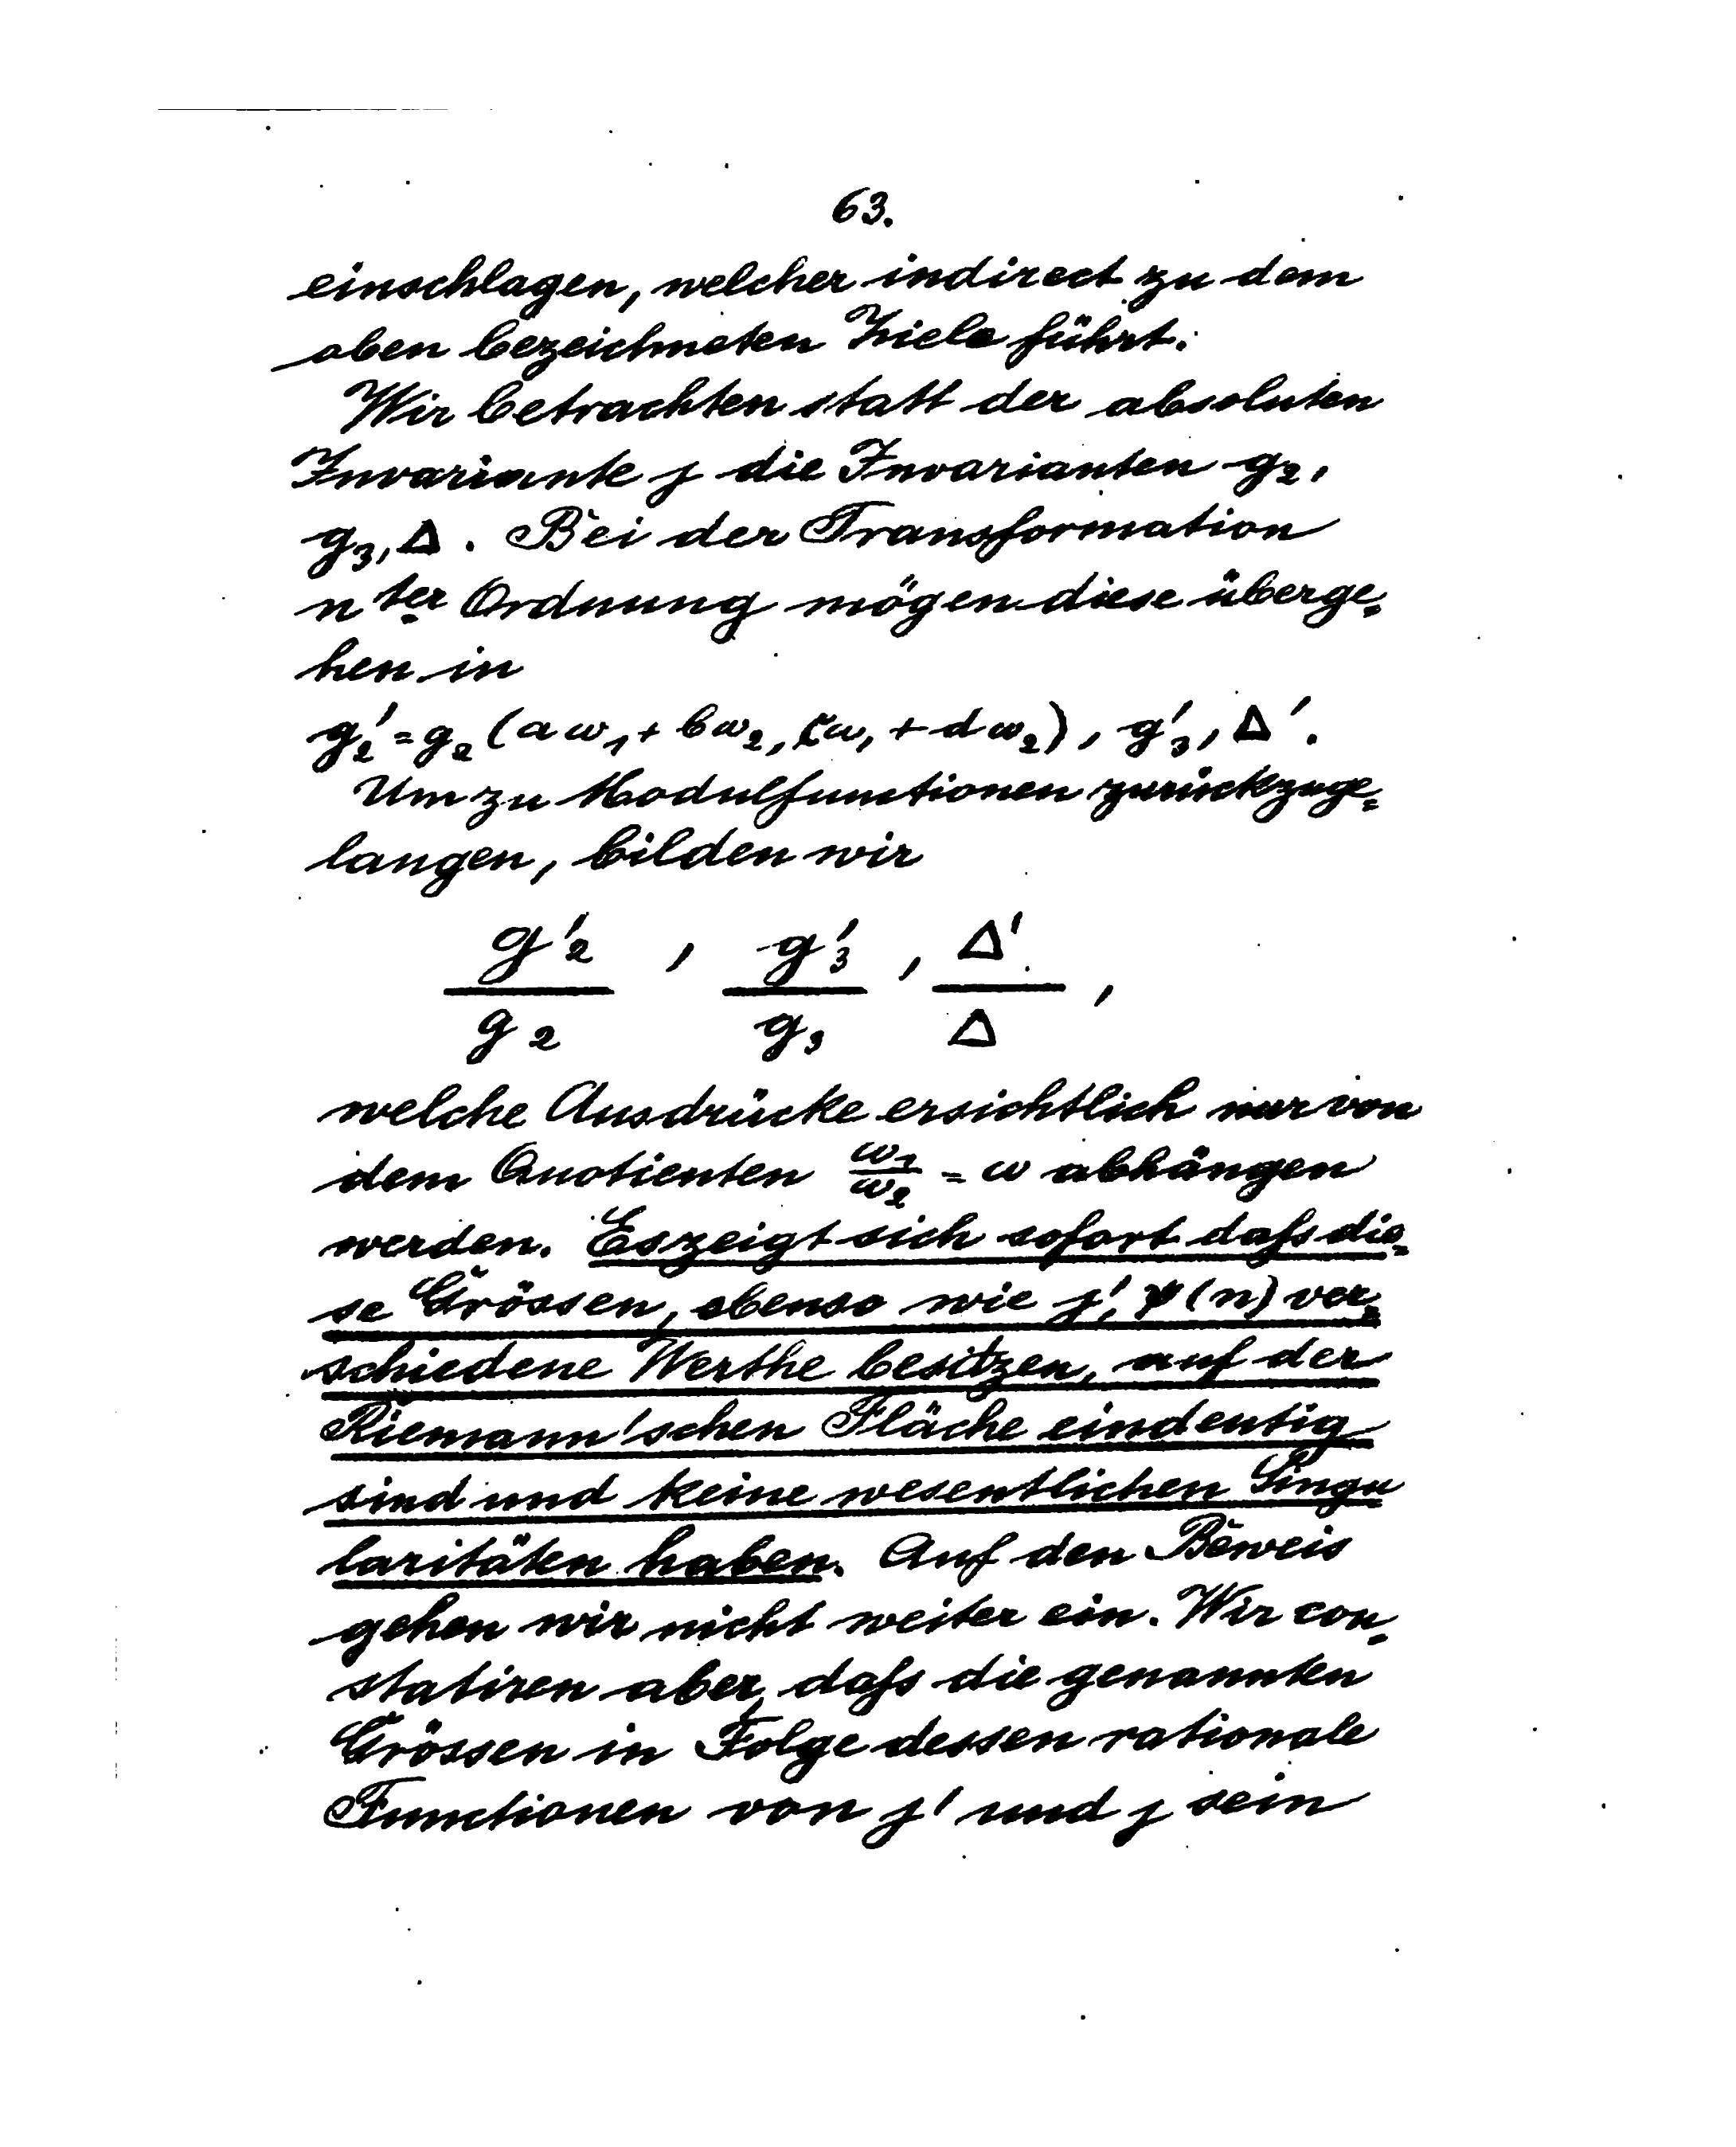 63.
einschlagen, welcher indirect zu dem
oben bezeichneten Ziele führt.
Wir betrachten statt der absoluten
Invariante j die Invarianten g₂,
g₃, Δ. Bei der Transformation
n ter Ordnung mögen diese überge=
hen in
g₂' = g₂ (aω₁ + bω₂, cω₁ + dω₂), g₃', Δ'.
Um zu Modulfunctionen zurückzuge=
langen, bilden wir
g'₂/g₂ , g'₃/g₃ , Δ'/Δ ,
welche Ausdrücke ersichtlich nur von
dem Quotienten ω₁/ω₂ = ω abhängen
werden. Es zeigt sich sofort daſs die=
se Grössen, ebenso wie j', ψ(n) ver=
schiedene Werthe besitzen, auf der
Riemann'schen Fläche eindeutig
sind und keine wesentlichen Singu
laritäten haben. Auf den Beweis
gehen wir nicht weiter ein. Wir con=
statiren aber, daſs die genannten
Grössen in Folge dessen rationale
Functionen von j' und j sein